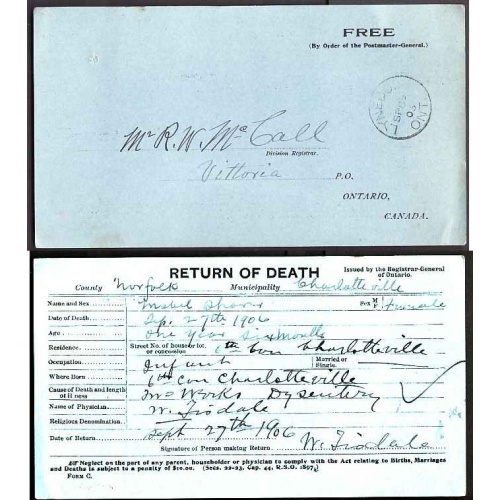 FREE
(By Order of the Postmaster-General.)
LYNEDOCH
ONT
Mr R. W. McCall
Division Registrar.
Vittoria P.O.
ONTARIO,
CANADA.
RETURN OF DEATH
Issued by the Registrar-General
of Ontario.
County Norfolk Municipality Charlotteville
Name and Sex Mabel Sex M F Female
Date of Death Sep. 27th 1906
Age One Year Six Months
Residence. Street No. of house or lot, or concession 6th Con Charlotteville
Occupation Infant Married or Single.
Where Born 6th Con Charlotteville
Cause of Death and length of illness Two Weeks Dysentery
Name of Physician W. Tisdale
Religious Denomination
Date of Return Sept 27th 1906
Signature of Person making Return W. Tisdale
Neglect on the part of any parent, householder or physician to comply with the Act relating to Births, Marriages
and Deaths is subject to a penalty of $20.00. (Secs. 22-23, Cap. 44, R.S.O. 1897.)
FORM C.